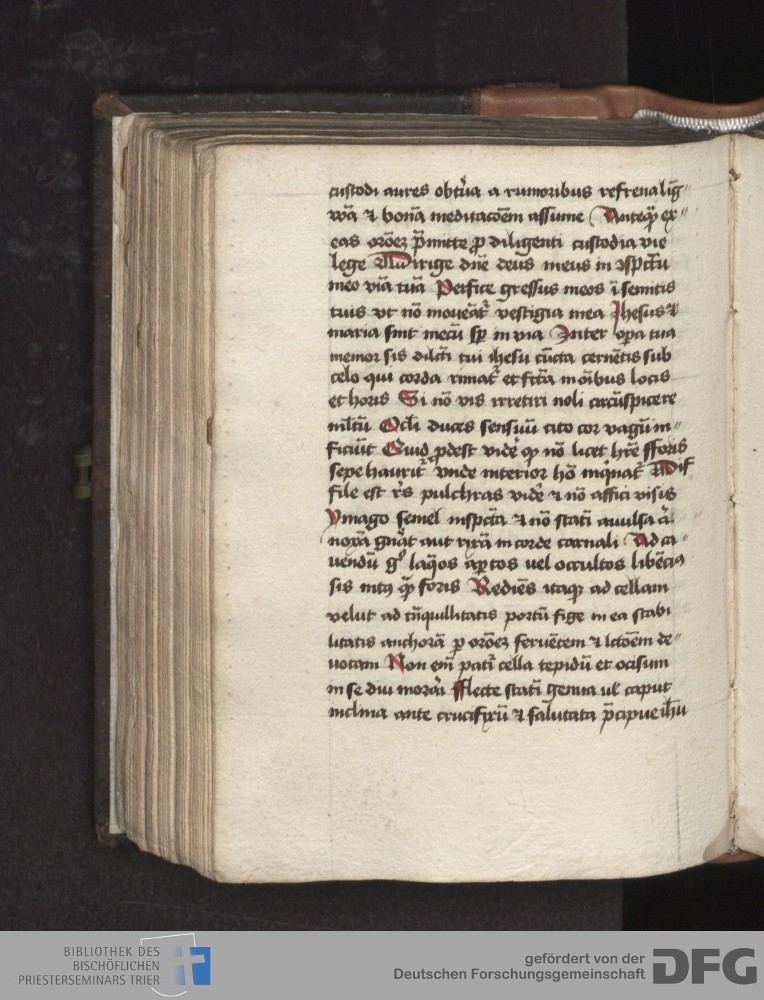 custodi aures obtūa a rumoribus refrena lig̅"
wā ⁊ bonā meditacōem assume Anteq̄ ex"
eas orōeʒ p̄mitte ꝓ diligenti custodia vie
lege dirige dn̄e deus meus in ɔspc̄tu
meo viā tuā Perfice gressus meos ī semitis
tuis vt nō moueāt᷑ vestigia mea Jhesus ⁊
maria sint mecū sp̄ in via Inter oꝑa tua
memor sis dilc̄ti tui ihesu cūcta cernētis sub
celo qui corda rimat᷑ et fc̄ta in oībus locis
et horis Si nō vis irretiri noli circūspicere
ml̄tū Ocl̄i duces sensuū cito cor vagū in"
ficiūt Quid ꝓdest vidē qꝫ nō licet hr̄e fforis
sepe haurit᷑ vnde interior hō inq̄nat᷑ Dif
file est r̄s pulchras vidē ⁊ nō affici visis
Ymago semel inspc̄ta ⁊ nō statī auulsa a
noxā gn̄at aut rixā in corde carnali Ad ca"
uendū gͦ laq̄os aꝑtos vel occultos libēciꝰ
sis intꝰ q̄ foris Rediēs itaqꝫ ad cellam
velut ad tn̄quillitatis portū fige in ea stabi
litatis anchorā ꝑ orōeʒ feruētem ⁊ lctōem de"
uotam Non em̄ patit᷑ cella tepidū et ocisum
in se diu morāi fflecte statī genua ul̄ caput
inclina ante crucifixū ⁊ salutata p̄cipue ih̄u
BIBLIOTHEK DES
BISCHÖFLICHEN
PRIESTERSEMINARS TRIER
gefördert von der
Deutschen Forschungsgemeinschaft
DFG